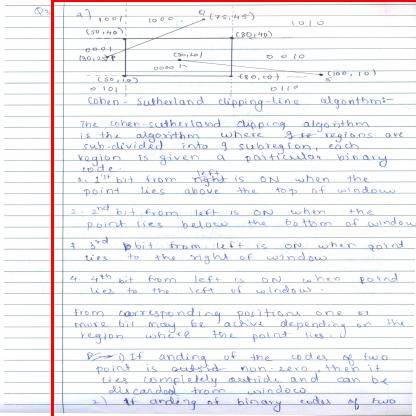 Q3
a) 1001 1000 Q (75,45) 1010
(50,40) (80,40)
0001
(30,25)P (70,20) 0010
0000 R
(50,10) (80,10) (100,10)
S
0101 0110
Cohen-Sutherland clipping-line algorithm:-
The cohen-sutherland clipping algorithm
is the algorithm where regions are
sub-divided into 9 subregion, each
region is given a particular binary
code.
left
1. 1st bit from right is ON when the
point lies above the top of window
2. 2nd bit from left is ON when the
point lies below the bottom of window
3. 3rd bit from left is ON when point
lies to the right of window
4. 4th bit from left is ON when point
lies to the left of window.
From corresponding positions one or
more bit may be active depending on the
region where the point lies.
1) If anding of the codes of two
point is outside non-zero, then it
lies completely outside and can be
discarded from window
2) If anding of binary codes of two